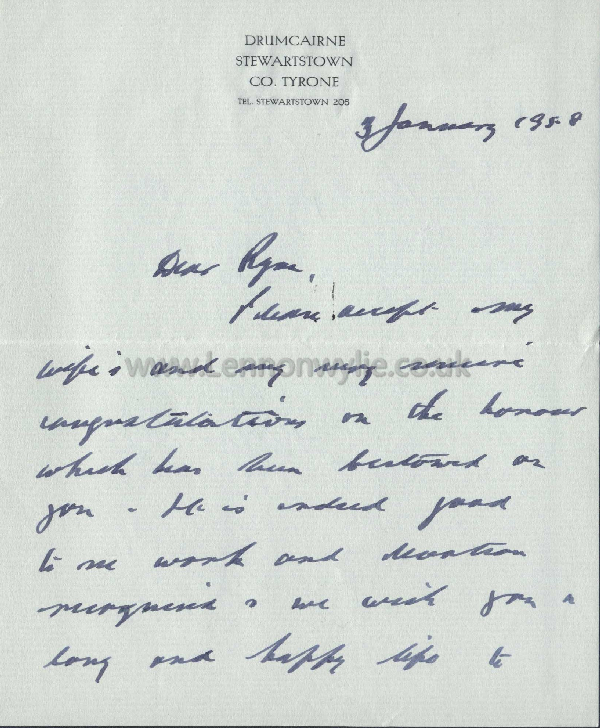 DRUMCAIRNE
STEWARTSTOWN
CO. TYRONE
TEL. STEWARTSTOWN 205
3 January 1958
Dear
Please accept my
www.Lennonwylie.co.uk
wife's and my very sincere
congratulations on the honour
which has been bestowed on
you - It is indeed good
to see work and devotion
recognised & we wish you a
long and happy life to